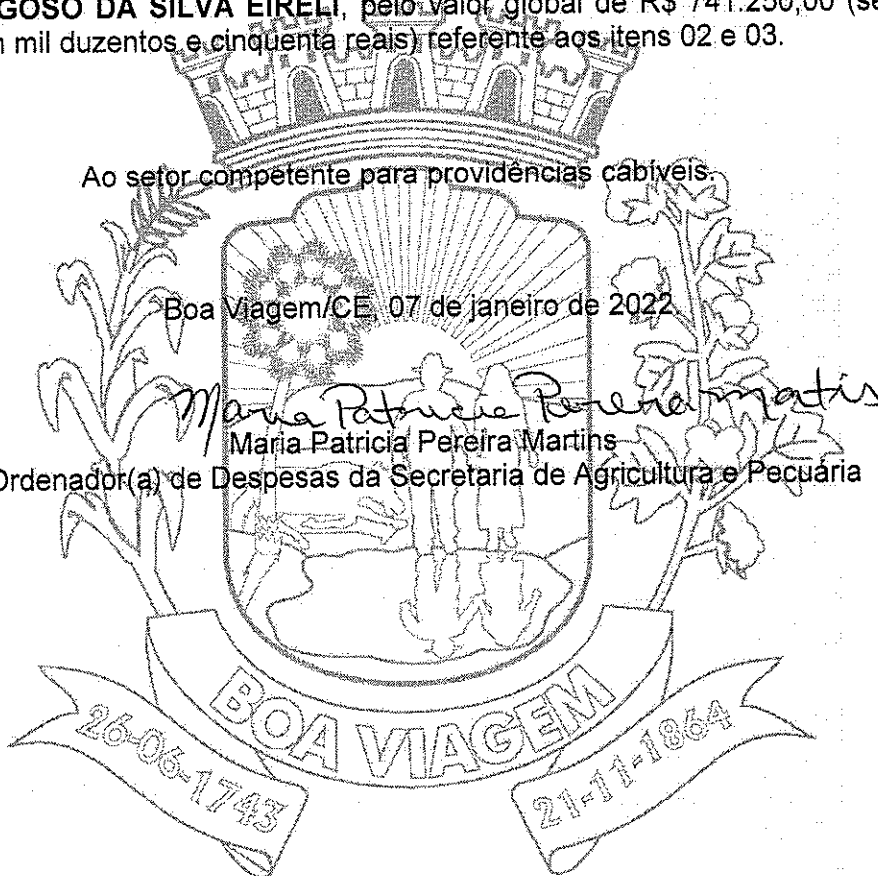 GOSO DA SILVA EIRELI, pelo valor global de R$ 741.250,00 (se
mil duzentos e cinquenta reais) referente aos itens 02 e 03.
Ao setor competente para providências cabíveis.
Boa Viagem/CE, 07 de janeiro de 2022
Maria Patricia Pereira Martins
Maria Patricia Pereira Martins
Ordenador(a) de Despesas da Secretaria de Agricultura e Pecuária
BOA VIAGEM
26-06-1743
21-11-1864